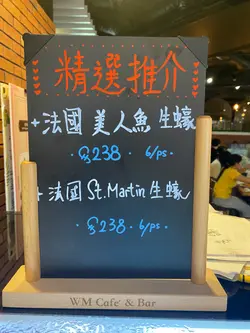 精選推介
+法國 美人魚 生蠔
$238 · 6/ps ·
+法国 St. Martin 生蠔
· $238 · 6/ps ·
WM Café & Bar